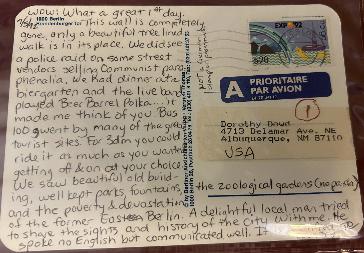 Wow! What a great 1st day.
The Wall is completely
gone, only a beautiful tree lined
walk is in its place. We did see
a police raid on some street
vendors selling Communist para-
phenalia. We had dinner at a
biergarten and the live band
played Beer Barrel Polka... it
made me think of you. Bus
100 went by many of the great
tourist sites. For 3dm you could
ride it as much as you wanted
getting off & on at your choice.
We saw beautiful old build-
ings, well kept parks, fountains,
the zoological gardens (no pandas)
and the poverty & devastation
of the former Eastern Berlin. A delightful local man tried
to share the sights and history of the City with me. He
spoke no English but communicated well. It
1000 Berlin
Brandenburger Tor
EXPO
A
PRIORITAIRE
PAR AVION
1
Dorothy Doyd
4713 Delamar Ave. NE
Albuquerque, NM 87110
USA